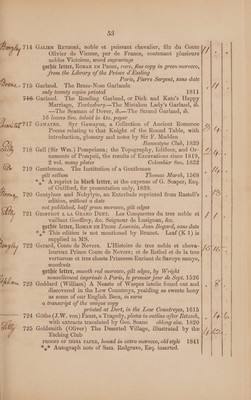 53
714 GALIEN RETHORÉ, noble et puissant chevalier, filz du Conte
Olivier de Vienne, per de France, contenant plusieurs
nobles Victoires, wood engravings
gothic letter, ROMAN EN PROSE, rare, fine copy in green morocco,
from the Library of the Prince of Essling
Paris, Pierre Sergent, sans date
715 Garland. The Brno-Nose Garlands
only twenty copies printed 1811
716 Garland. The Reading Garland, or Dick and Kate's Happy
Marriage, Tewksbury—The Mistaken Lady's Garland, ib.
—The Seaman of Dover, ib.—Sweet Garland, ib.
16 leaves 8vo. inlaid in 4to. paper
717 GAWAYNE. Syr Gawayne; a Collection of Ancient Romance
Poems relating to that Knight of the Round Table, with
introduction, glossary and notes by Sir F. Madden
Bannatyne Club, 1839
718 Gell (Sir Wm.) Pompeiana; the Topography, Edifices, and Or-
naments of Pompeii, the results of Excavations since 1819,
2 vol. many plates Colombier 8vo. 1832
719 Gentleman. The Institution of a Gentleman
gilt vellum Thomas Marsh, 1568
*** A reprint in black letter, at the expense of G. Soaper, Esq.
of Guilford, for presentation only, 1839.
720 Gentylnes and Nobylyte, an Enterlude reprinted from Rastell's
edition, without a date
not published, half green morocco, gilt edges
721 GEOFFROY A LA GRAND DENT. Les Conquestes du tres noble et
vaillant Geoffroy, &c. Seigneur de Lusignan, &c.
gothic letter, ROMAN EN PROSE Louvain, Jean Bogard, sans date
*** This edition is not mentioned by Brunet. Leaf (S 1) is
supplied in MS.
722 Gerard, Conte de Nevers. L'Histoire de tres noble et cheva-
leureux Prince Conte de Nevers: et de Rethel et de la tres
vertueuse et tres chaste Princesse Euriant de Savoye samye,
woodcuts
gothic letter, smooth red morocco, gilt edges, by Wright
nouvellement imprimée à Paris, le premier jour de Sept. 1526
723 Goddard (William) A Neaste of Waspes latelie found out and
discovered in the Law Countreys, yealding as sweete hony
as some of our English Bees, in verse
a transcript of the unique copy
printed at Dort, in the Low Countreyes, 1615
724 Göthe (J.W. von) Faust, a Tragedy, plates in outline after Retzsch,
with extracts translated by Geo. Soane oblong size. 1820
725 Goldsmith (Oliver) The Deserted Village, illustrated by the
Etching Club
PROOFS ON INDIA PAPER, bound in extra morocco, old style 1841
*** Autograph note of Sam. Redgrave, Esq. inserted.